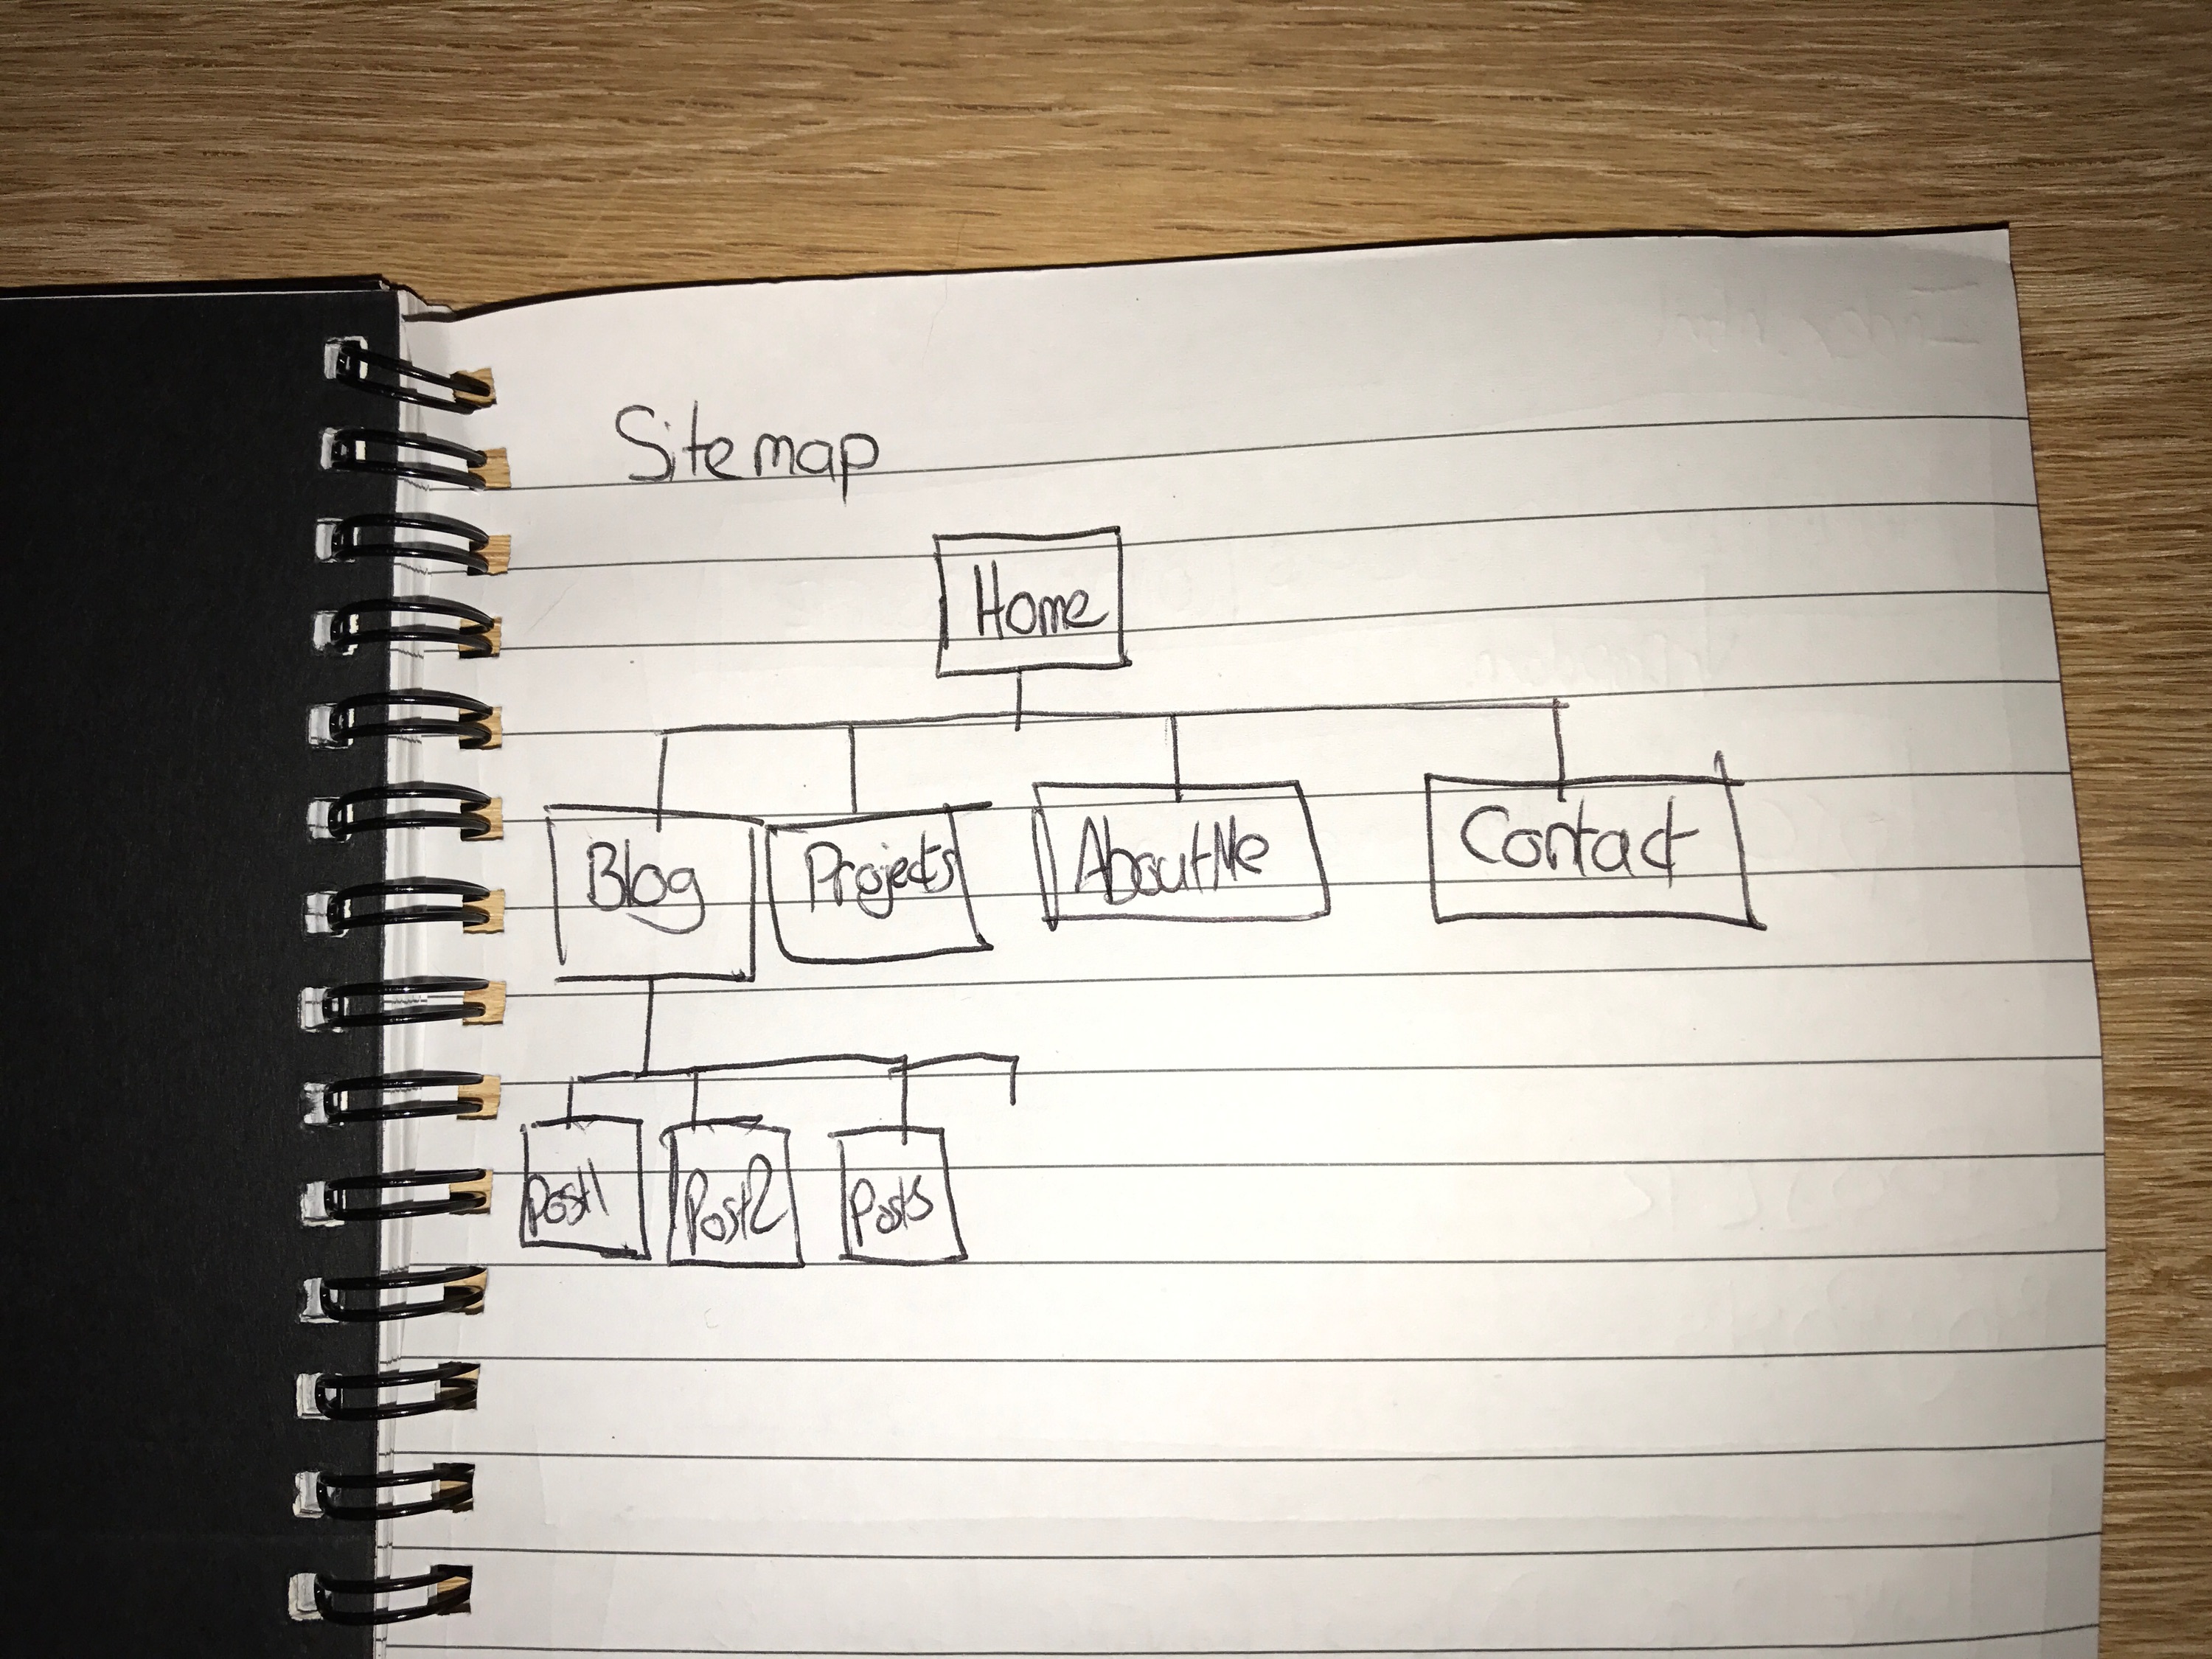 Sitemap
Home
Blog
Projects
About Me
Contact
Post1
Post2
Post3